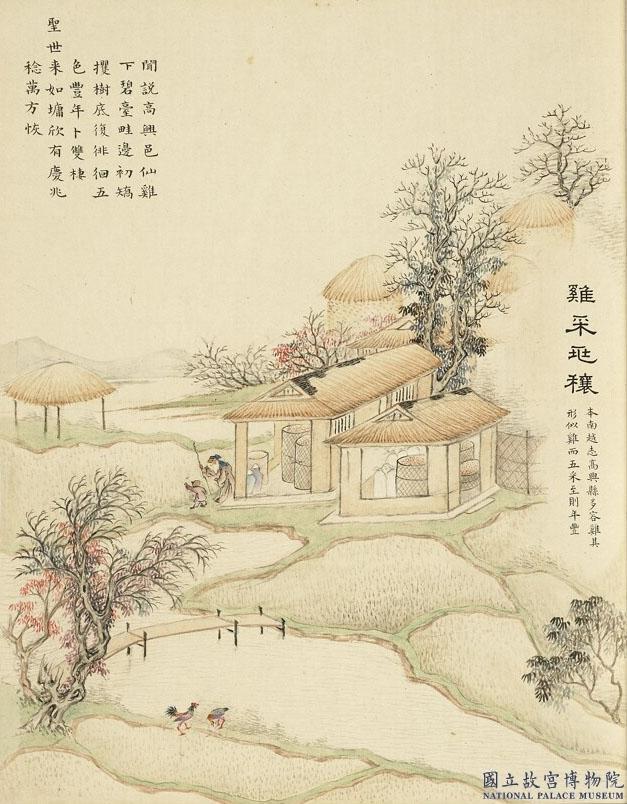 雞采穰
本南越志高興縣多容雞其
形似雞而五采至則年豐
聞說高興邑仙雞
下碧臺畦邊初矯
攫樹底復徘徊五
色豐年卜雙棲
聖世來如墉欣有慶兆
稔萬方恢
國立故宮博物院
NATIONAL PALACE MUSEUM